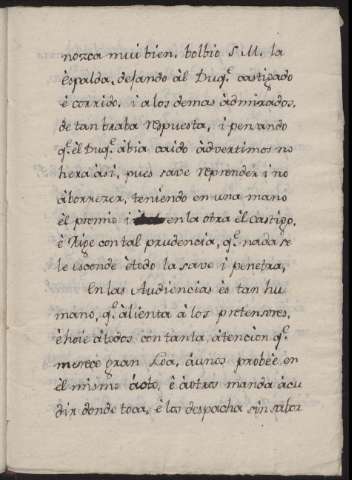 nozca mui bien, bolbio S.M. la
èspalda, dejando àl Duqᵉ castigado
è corrido, i a los demas àdmirados,
de tan braba respuesta, i pensando
qᵉ èl Duqᵉ àbia caido àdvertimos no
hera àsi, pues save reprender i no
àborrezer, teniendo en una mano
èl premio i en la otra èl castigo,
è Rige con tal prudencia, qᵉ nada se
le èsconde ètodo la save i penetra,
En las Audiencias ès tan hu
mano, qᵉ àlienta à los pretensores,
è hoie àtodos con tanta àtencion qᵉ
merece gran Loa, àunos probèe en
èl mismo àcto, è àotros manda àcu
dir donde toca, è los despacha sin